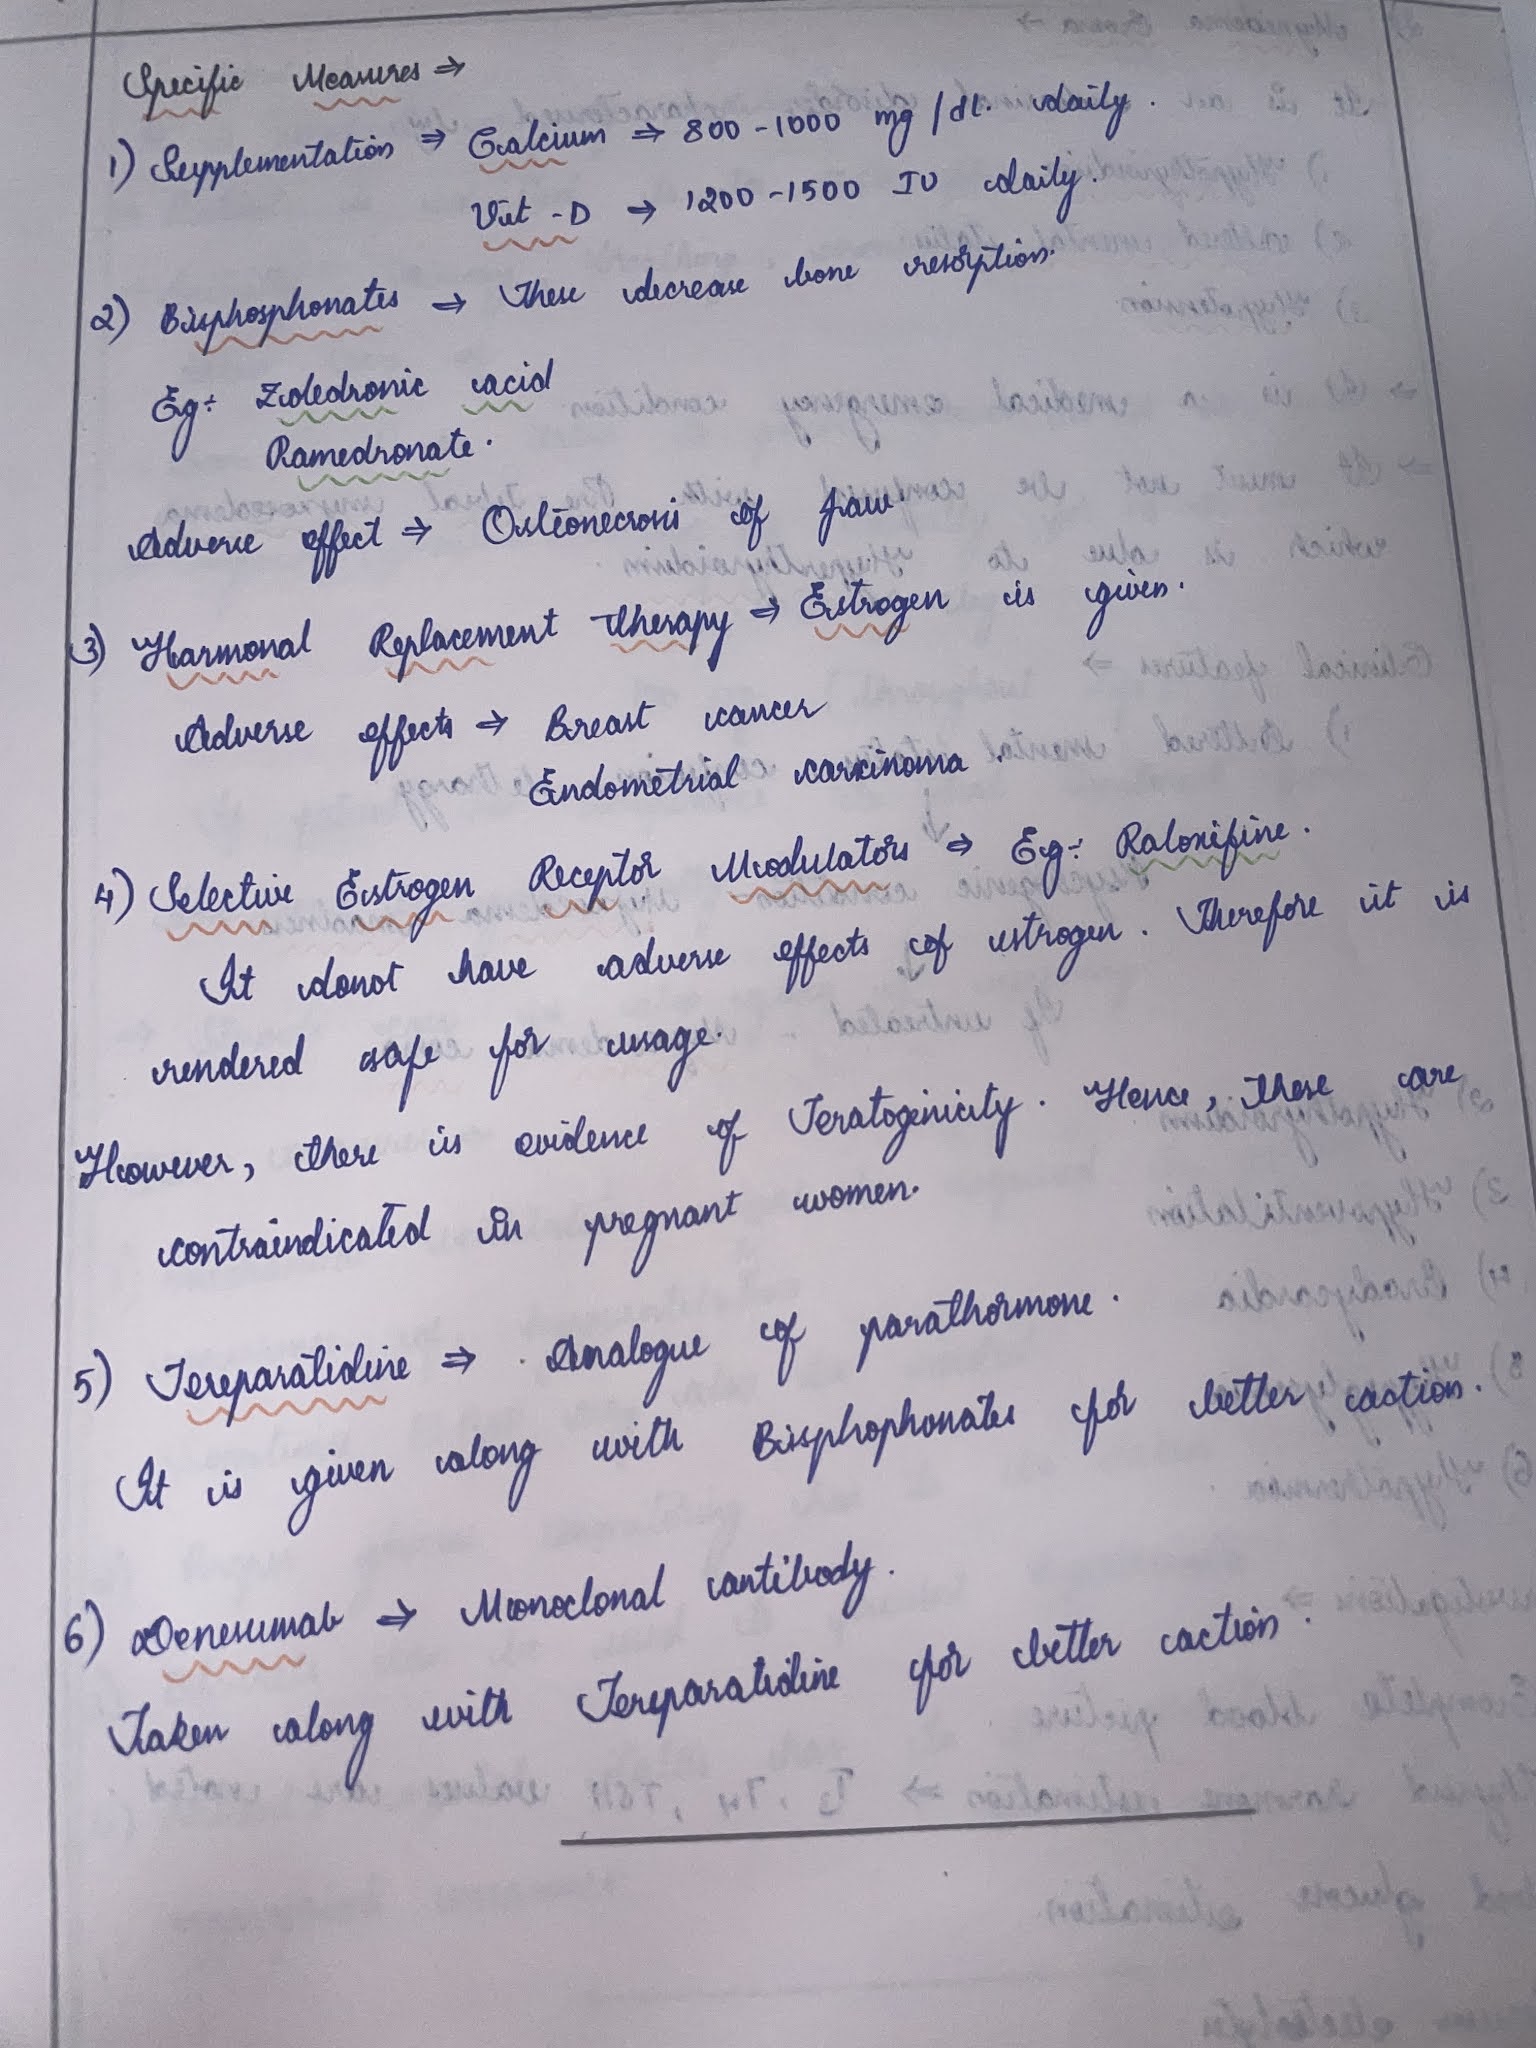 Specific Measures ⇒
1) Supplementation ⇒ Calcium ⇒ 800-1000 mg/dl. daily.
Vit-D ⇒ 1200-1500 IU daily.
2) Bisphosphonates ⇒ These decrease bone resorption.
Eg÷ Zoledronic acid
Pamedronate.
Adverse effect ⇒ Osteonecrosis of jaw
3) Harmonal Replacement Therapy ⇒ Estrogen is given.
Adverse effects ⇒ Breast cancer
Endometrial carcinoma.
4) Selective Estrogen Receptor Modulators ⇒ Eg÷ Raloxifine.
It donot have adverse effects of estrogen. Therefore it is
rendered safe for usage.
However, there is evidence of Teratogenicity. Hence, these are
contraindicated in pregnant women.
5) Tereparatidine ⇒ Analogue of parathormone.
It is given along with Bisphophonates for better action.
6) Denesumab ⇒ Monoclonal antibody.
Taken along with Tereparatidine for better action.